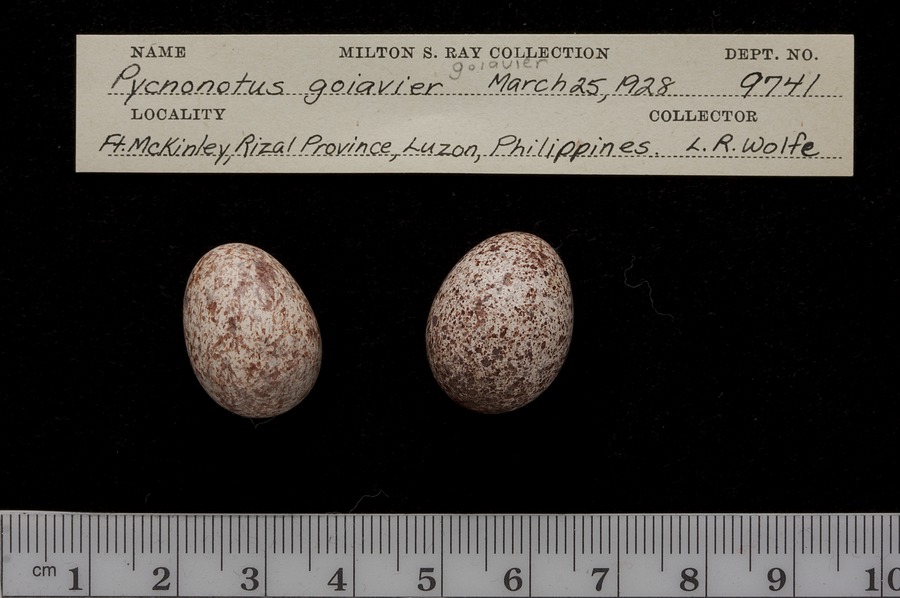 NAME MILTON S. RAY COLLECTION DEPT. NO.
goiavier
Pycnonotus goiavier March 25, 1928 9741
LOCALITY COLLECTOR
Ft. McKinley, Rizal Province, Luzon, Philippines. L. R. Wolfe
cm 1 2 3 4 5 6 7 8 9 10